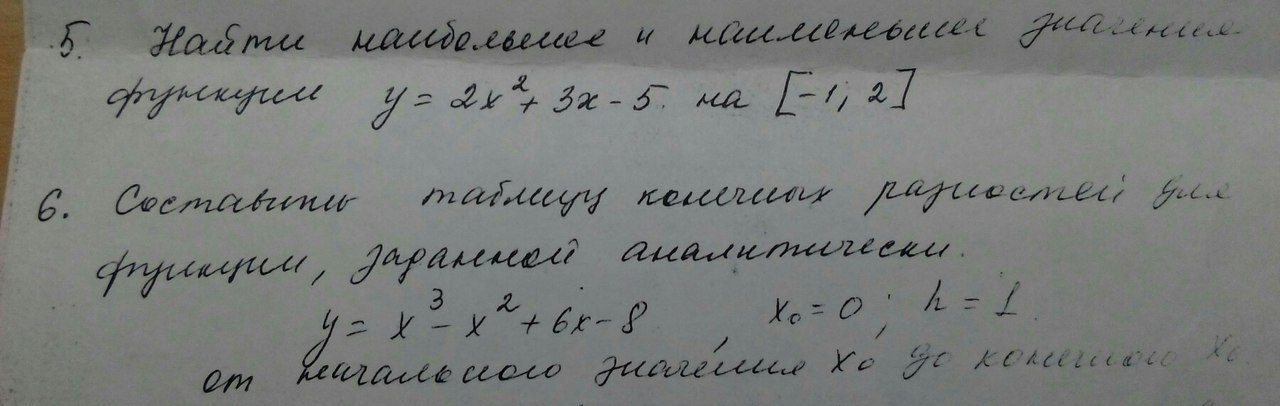 5. Найти наибольшее и наименьшее значение
функции y = 2x² + 3x - 5. на [-1; 2]
6. Составить таблицу конечных разностей для
функции, заданной аналитически.
y = x³ - x² + 6x - 8, x₀ = 0; h = 1.
от начального значения x₀ до конечного